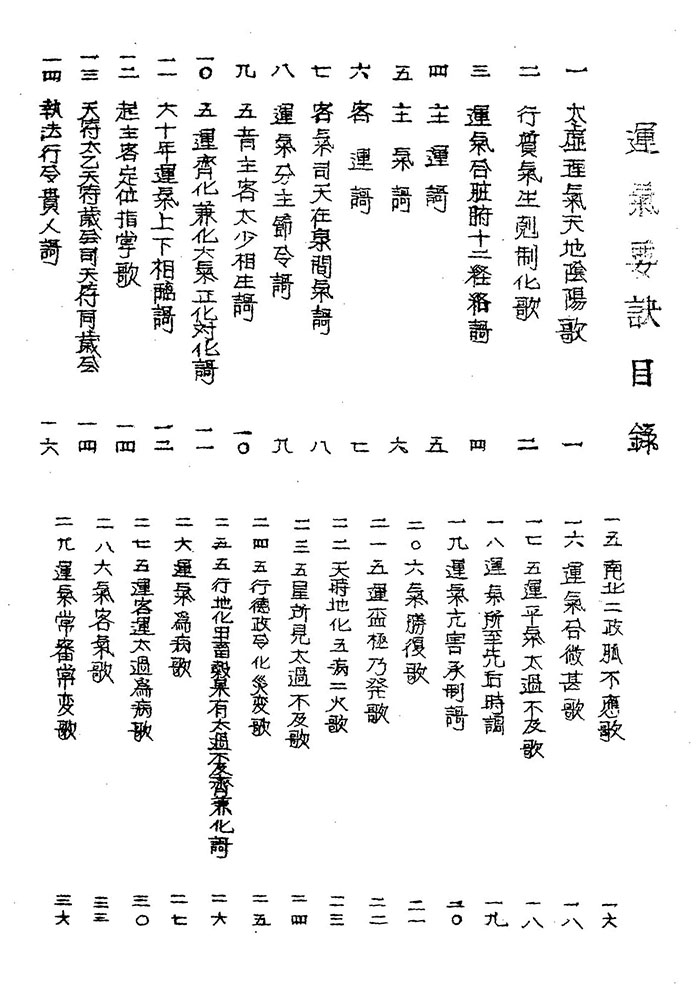 運氣要訣目錄
一 太虛理氣天地陰陽歌 一
二 行質氣生剋制化歌 二
三 運氣合脏腑十二経络謌 四
四 主運謌 五
五 主氣謌 六
六 客運謌 七
七 客氣司天在泉間氣謌 八
八 運氣分主節令謌 九
九 五音主客太少相生謌 一〇
一〇 五運齊化兼化六氣正化対化謌 一一
一一 六十年運氣上下相臨謌 一二
一二 起主客定位指掌歌 一四
一三 天符太乙天符歲会同天符同歲会 一四
一四 執法行令貴人謌 一六
一五 南北二政脈不應歌 一六
一六 運氣合微甚歌 一八
一七 五運平氣太過不及歌 一八
一八 運氣所至先后時謌 一九
一九 運氣亢害承制謌 二〇
二〇 六氣勝復歌 二一
二一 五運鬱極乃発歌 二二
二二 天時地化五病二火歌 二三
二三 五星所見太過不及歌 二四
二四 五行德政令化災变歌 二五
二五 五行地化虫畜穀果有太過不及齊兼化謌 二六
二六 運氣為病歌 二七
二七 五運客運太過為病歌 三〇
二八 六氣客氣歌 三三
二九 運氣常審常变歌 三六